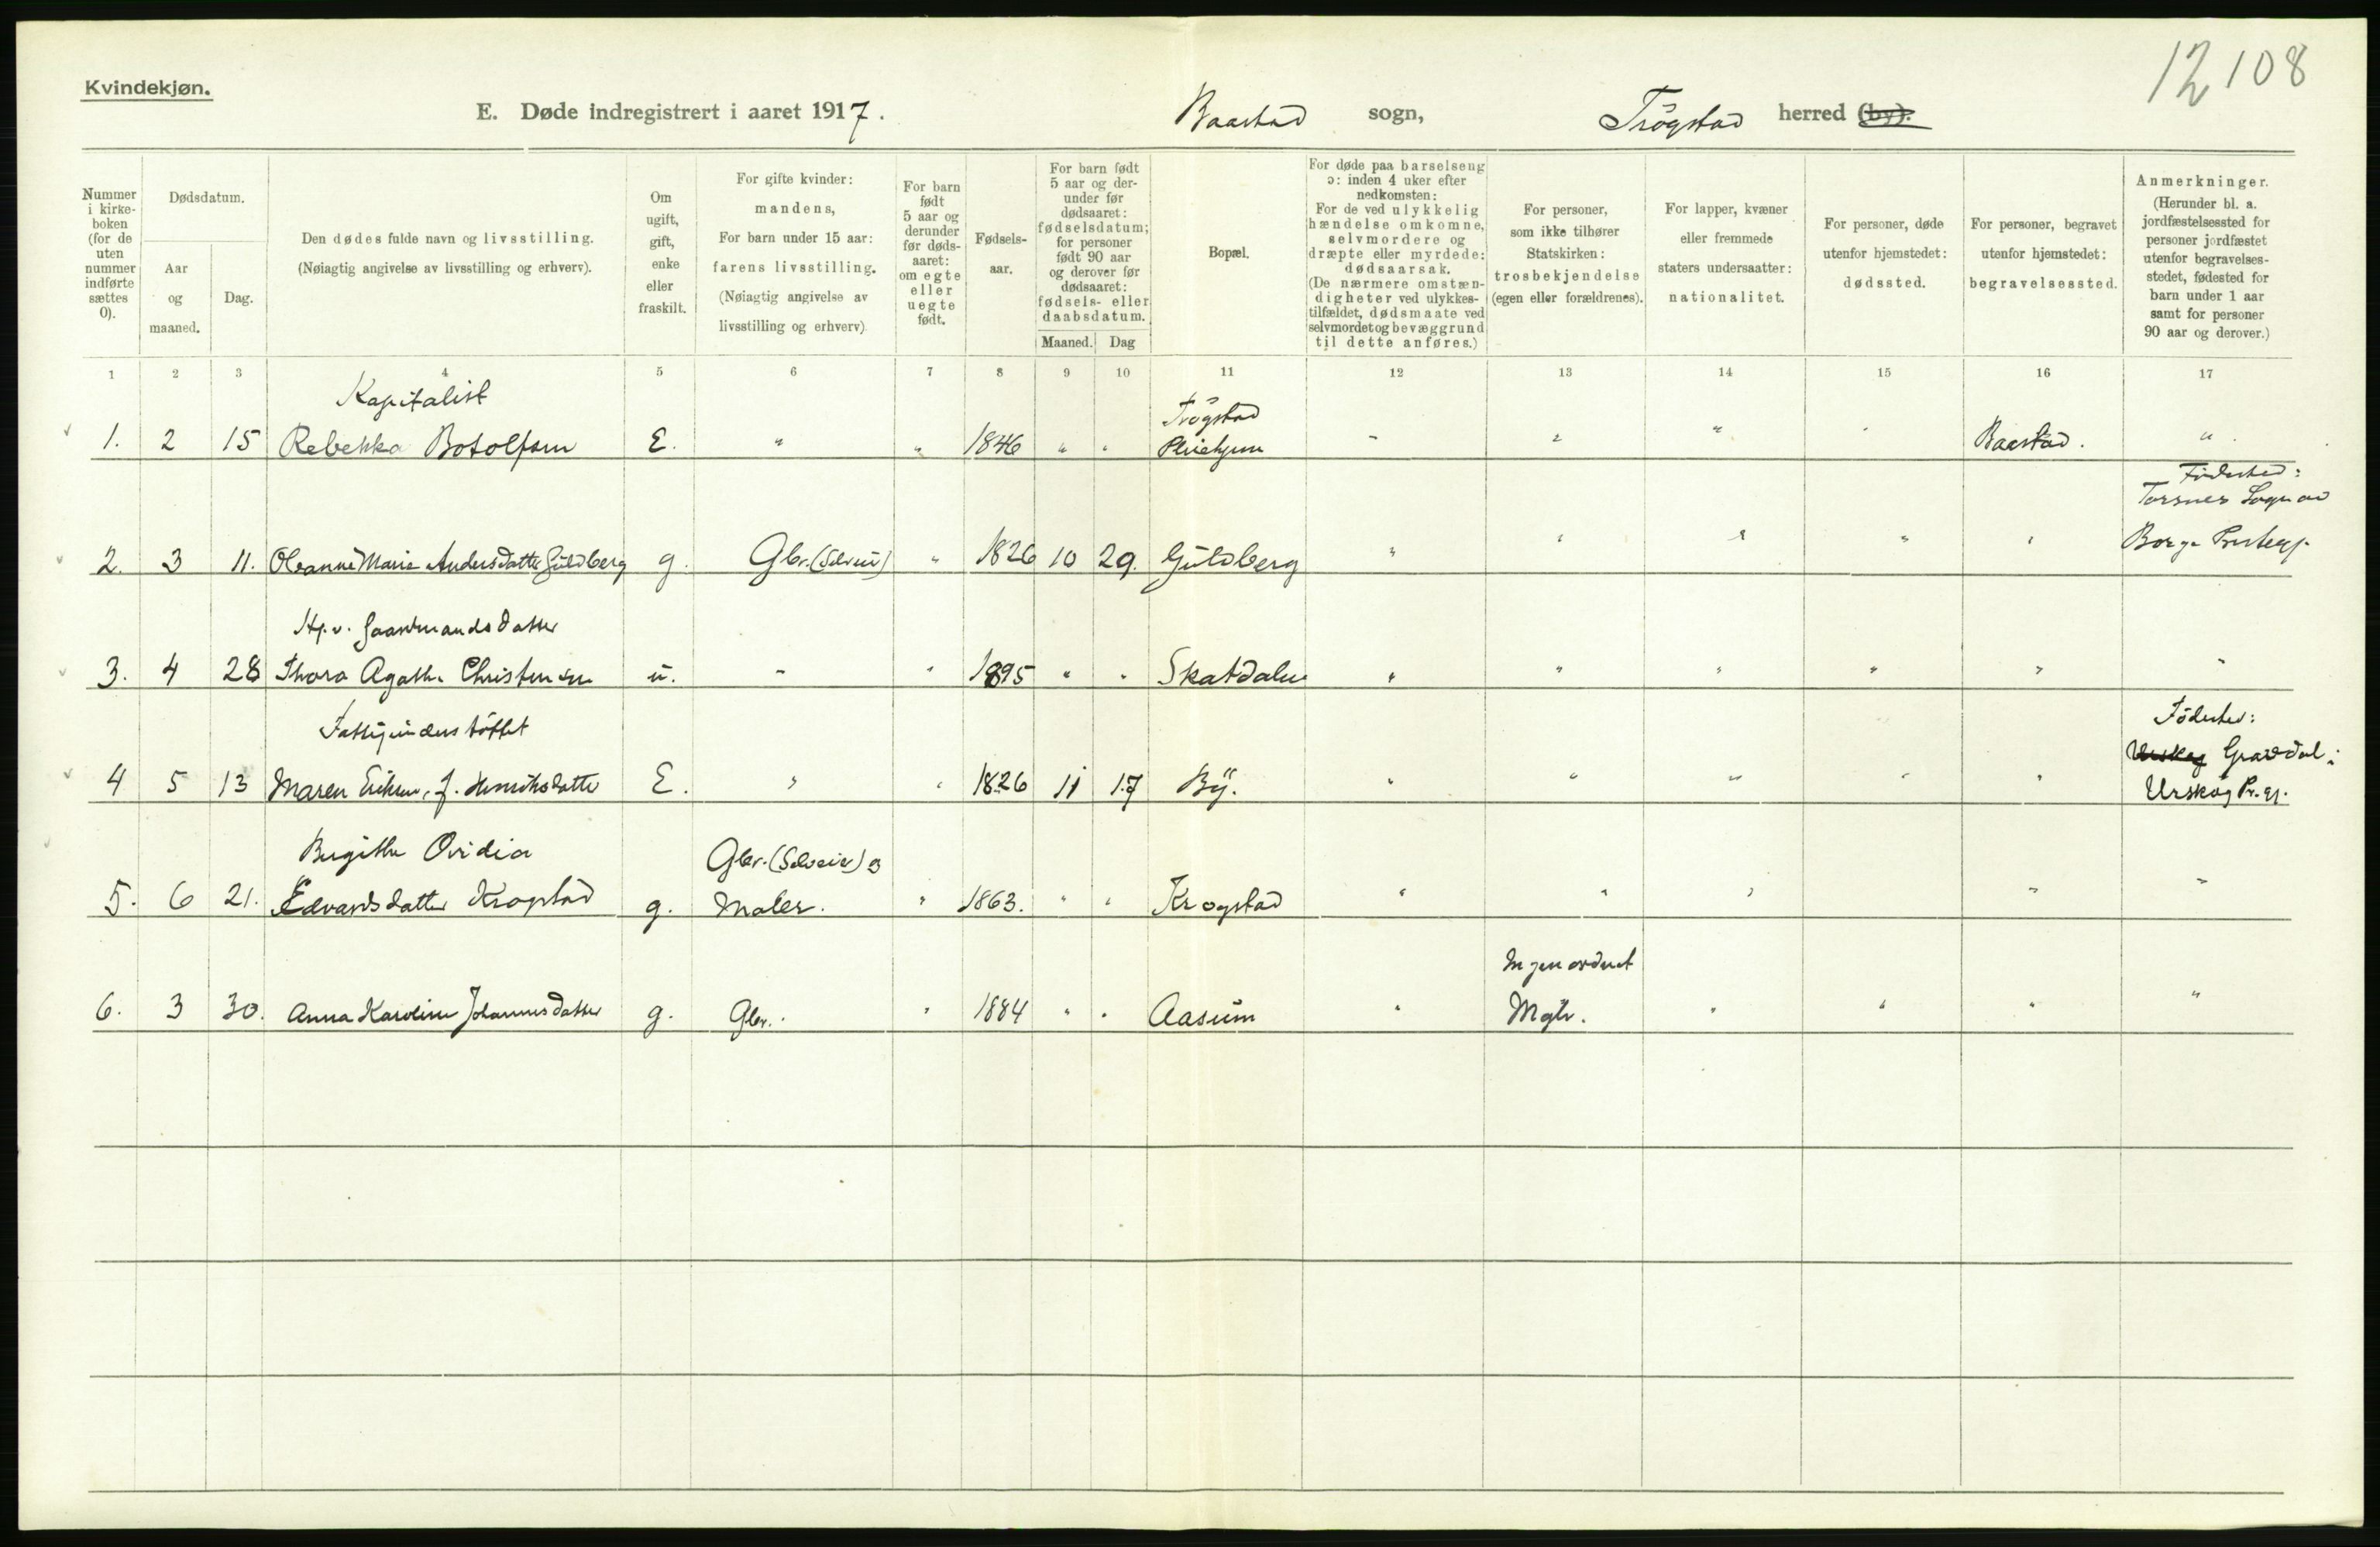 Kvindekjøn.
12 108
E. Døde indregistrert i aaret 1917. Baastad sogn, Trøgstad herred (by).
Nummer i kirke-boken (for de uten nummer indførte sættes 0).
Dødsdatum.
Aar og maaned.
Dag.
Den dødes fulde navn og livsstilling.
(Nøiagtig angivelse av livsstilling og erhverv).
Om ugift, gift, enke eller fraskilt.
For gifte kvinder:
mandens,
For barn under 15 aar:
farens livsstilling.
(Nøiagtig angivelse av
livsstilling og erhverv)
For barn født 5 aar og derunder før døds-aaret: om egte eller uegte født.
Fødsels-aar.
For barn født 5 aar og der-under før dødsaaret: fødselsdatum; for personer født 90 aar og derover før dødsaaret: fødsels- eller daabsdatum.
Maaned. Dag
Bopæl.
For døde paa barselseng
ɔ: inden 4 uker efter
nedkomsten:
For de ved ulykkelig
hændelse omkomne,
selvmordere og
dræpte eller myrdede:
dødsaarsak.
(De nærmere omstæn-
digheter ved ulykkes-
tilfældet, dødsmaate ved
selvmordet og bevæggrund
til dette anføres.)
For personer,
som ikke tilhører
Statskirken:
trosbekjendelse
(egen eller forældrenes).
For lapper, kvæner
eller fremmede
staters undersaatter:
nationalitet.
For personer, døde
utenfor hjemstedet:
dødssted.
For personer, begravet
utenfor hjemstedet:
begravelsessted.
Anmerkninger.
(Herunder bl. a.
jordfæstelsessted for
personer jordfæstet
utenfor begravelses-
stedet, fødested for
barn under 1 aar
samt for personer
90 aar og derover.)
1 2 3 4 5 6 7 8 9 10 11 12 13 14 15 16 17
Kapitalist Trögstad
1. 2 15 Rebekka Botolfsen E. " " 1846 " " - " " " Baastad. "
Födested:
Torsnes Sogn av
2. 3 11. Oleanne Marie Andersdatter Güldberg g. Gbr. (Selveier) " 1826 10 29. Güldberg " " " " " Borge Prestegj.
Hj. v. Gaardmandsdatter
3. 4 28 Thora Agathe Christensen u. - " 1895 " " Skatdalen " " " " " "
Fattigunderstöttet Födested:
Urskog Gravdal i
4 5 13 Maren Eriksen, f. Henriksdatter E. " " 1826 11 17 By. " " " " " Urskog Pr.gj.
Birgitte Ovidia Gbr. (Selveier) og
5. 6 21. Edvardsdatter Krogstad g. Maler. " 1863. " " Krogstad " " " " "
Ingen ordnet
6. 3 30. Anna Karoline Johannesdatter g. Gbr. " 1884 " " Aasum " Mgh. " " " "